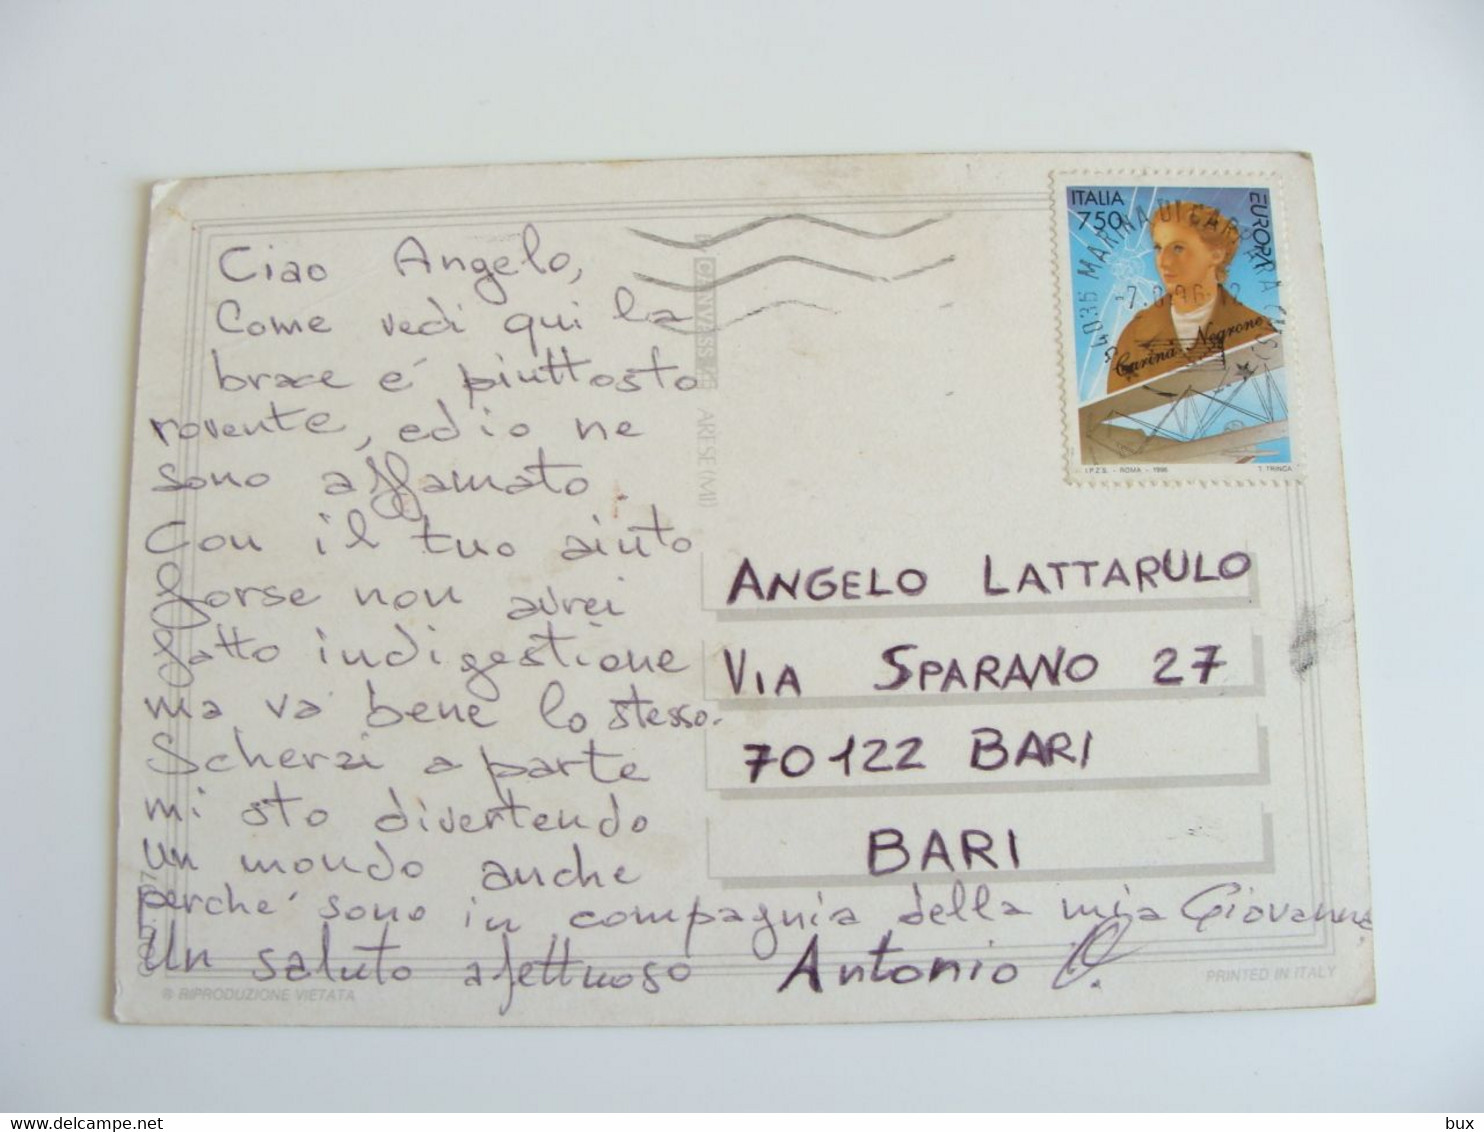 Ciao Angelo,
Come vedi qui la
brace e' piuttosto
rovente, ed io ne
sono affamato.
Con il tuo aiuto
forse non avrei
fatto indigestione
ma va bene lo stesso.
Scherzi a parte
mi sto divertendo
un mondo anche
perche' sono in compagnia della mia Giovanna
Un saluto affettuoso Antonio
ITALIA
750
EUROPA
MARINA DI CARRARA
Carina Negrone
I.P.Z.S. - ROMA - 1996
T. TRINCA
ANGELO LATTARULO
VIA SPARANO 27
70122 BARI
BARI
BY CANVASS
ARESE (MI)
® RIPRODUZIONE VIETATA
PRINTED IN ITALY
www.delcampe.net
bux